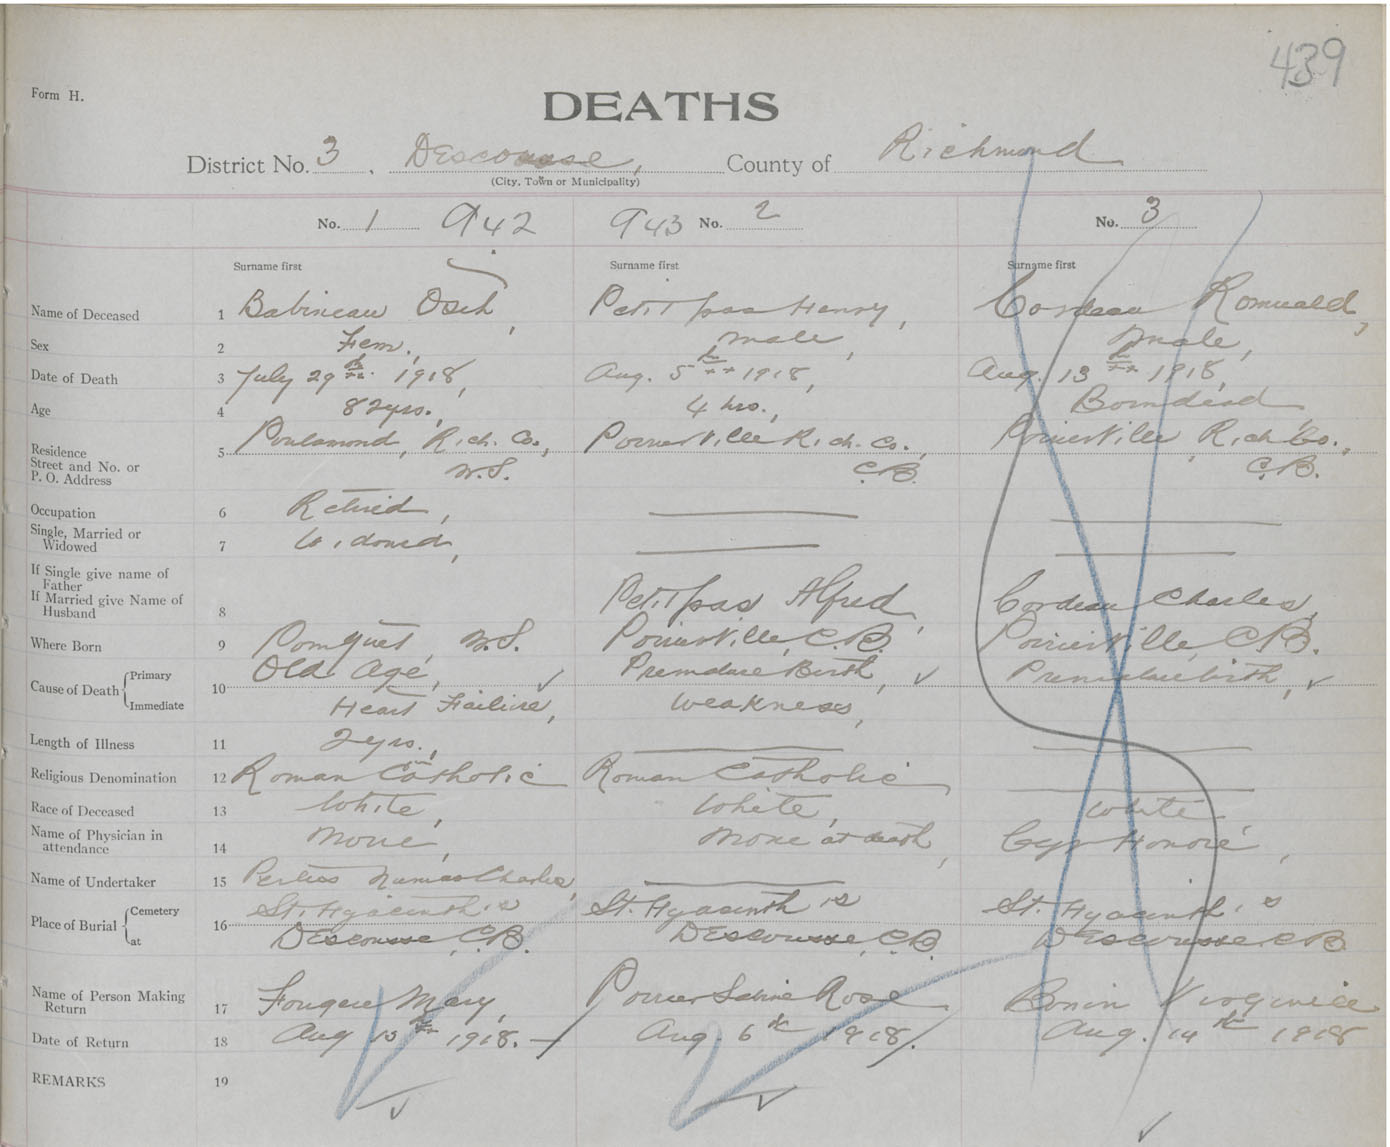 439
Form H.
DEATHS
District No. 3. Descousse, County of Richmond
(City, Town or Municipality)
No. 1 942 943 No. 2 No. 3
Surname first Surname first Surname first
Name of Deceased 1 Babineau Petitpas Henry, Cordeau Romuald,
Sex 2 Fem., male, male,
Date of Death 3 July 29th 1918, Aug. 5th 1918, Aug. 13th 1918,
Age 4 82yrs., 4 hrs., Borndead
Residence 5 Poulamond, Rich. Co., Poirierville Rich. Co., Poirierville, Rich Co.,
Street and No. or N.S. C.B. C.B.
P. O. Address
Occupation 6 Retired,
Single, Married or
Widowed 7 Widowed,
If Single give name of
Father
If Married give Name of
Husband 8 Petitpas Alfred, Cordeau Charles,
Where Born 9 Pomquet, N.S. Poirierville, C.B. Poirierville, C.B.
Cause of Death Primary 10 Old Age, Premature Birth, Premature birth,
Immediate Heart Failure, Weakness,
Length of Illness 11 2yrs.,
Religious Denomination 12 Roman Catholic Roman Catholic
Race of Deceased 13 White, White, White
Name of Physician in
attendance 14 None, None at death, Cyr Honoré,
Name of Undertaker 15 Charles,
Place of Burial Cemetery 16 St. Hyacinth's St. Hyacinth's St. Hyacinth's
at Descousse, C.B. Descousse, C.B. Descousse C.B.
Name of Person Making
Return 17 Fougere Mary, Poirier Sabine Rose Bonin
Date of Return 18 Aug 13th 1918. Aug. 6th 1918. Aug. 14th 1918
REMARKS 19